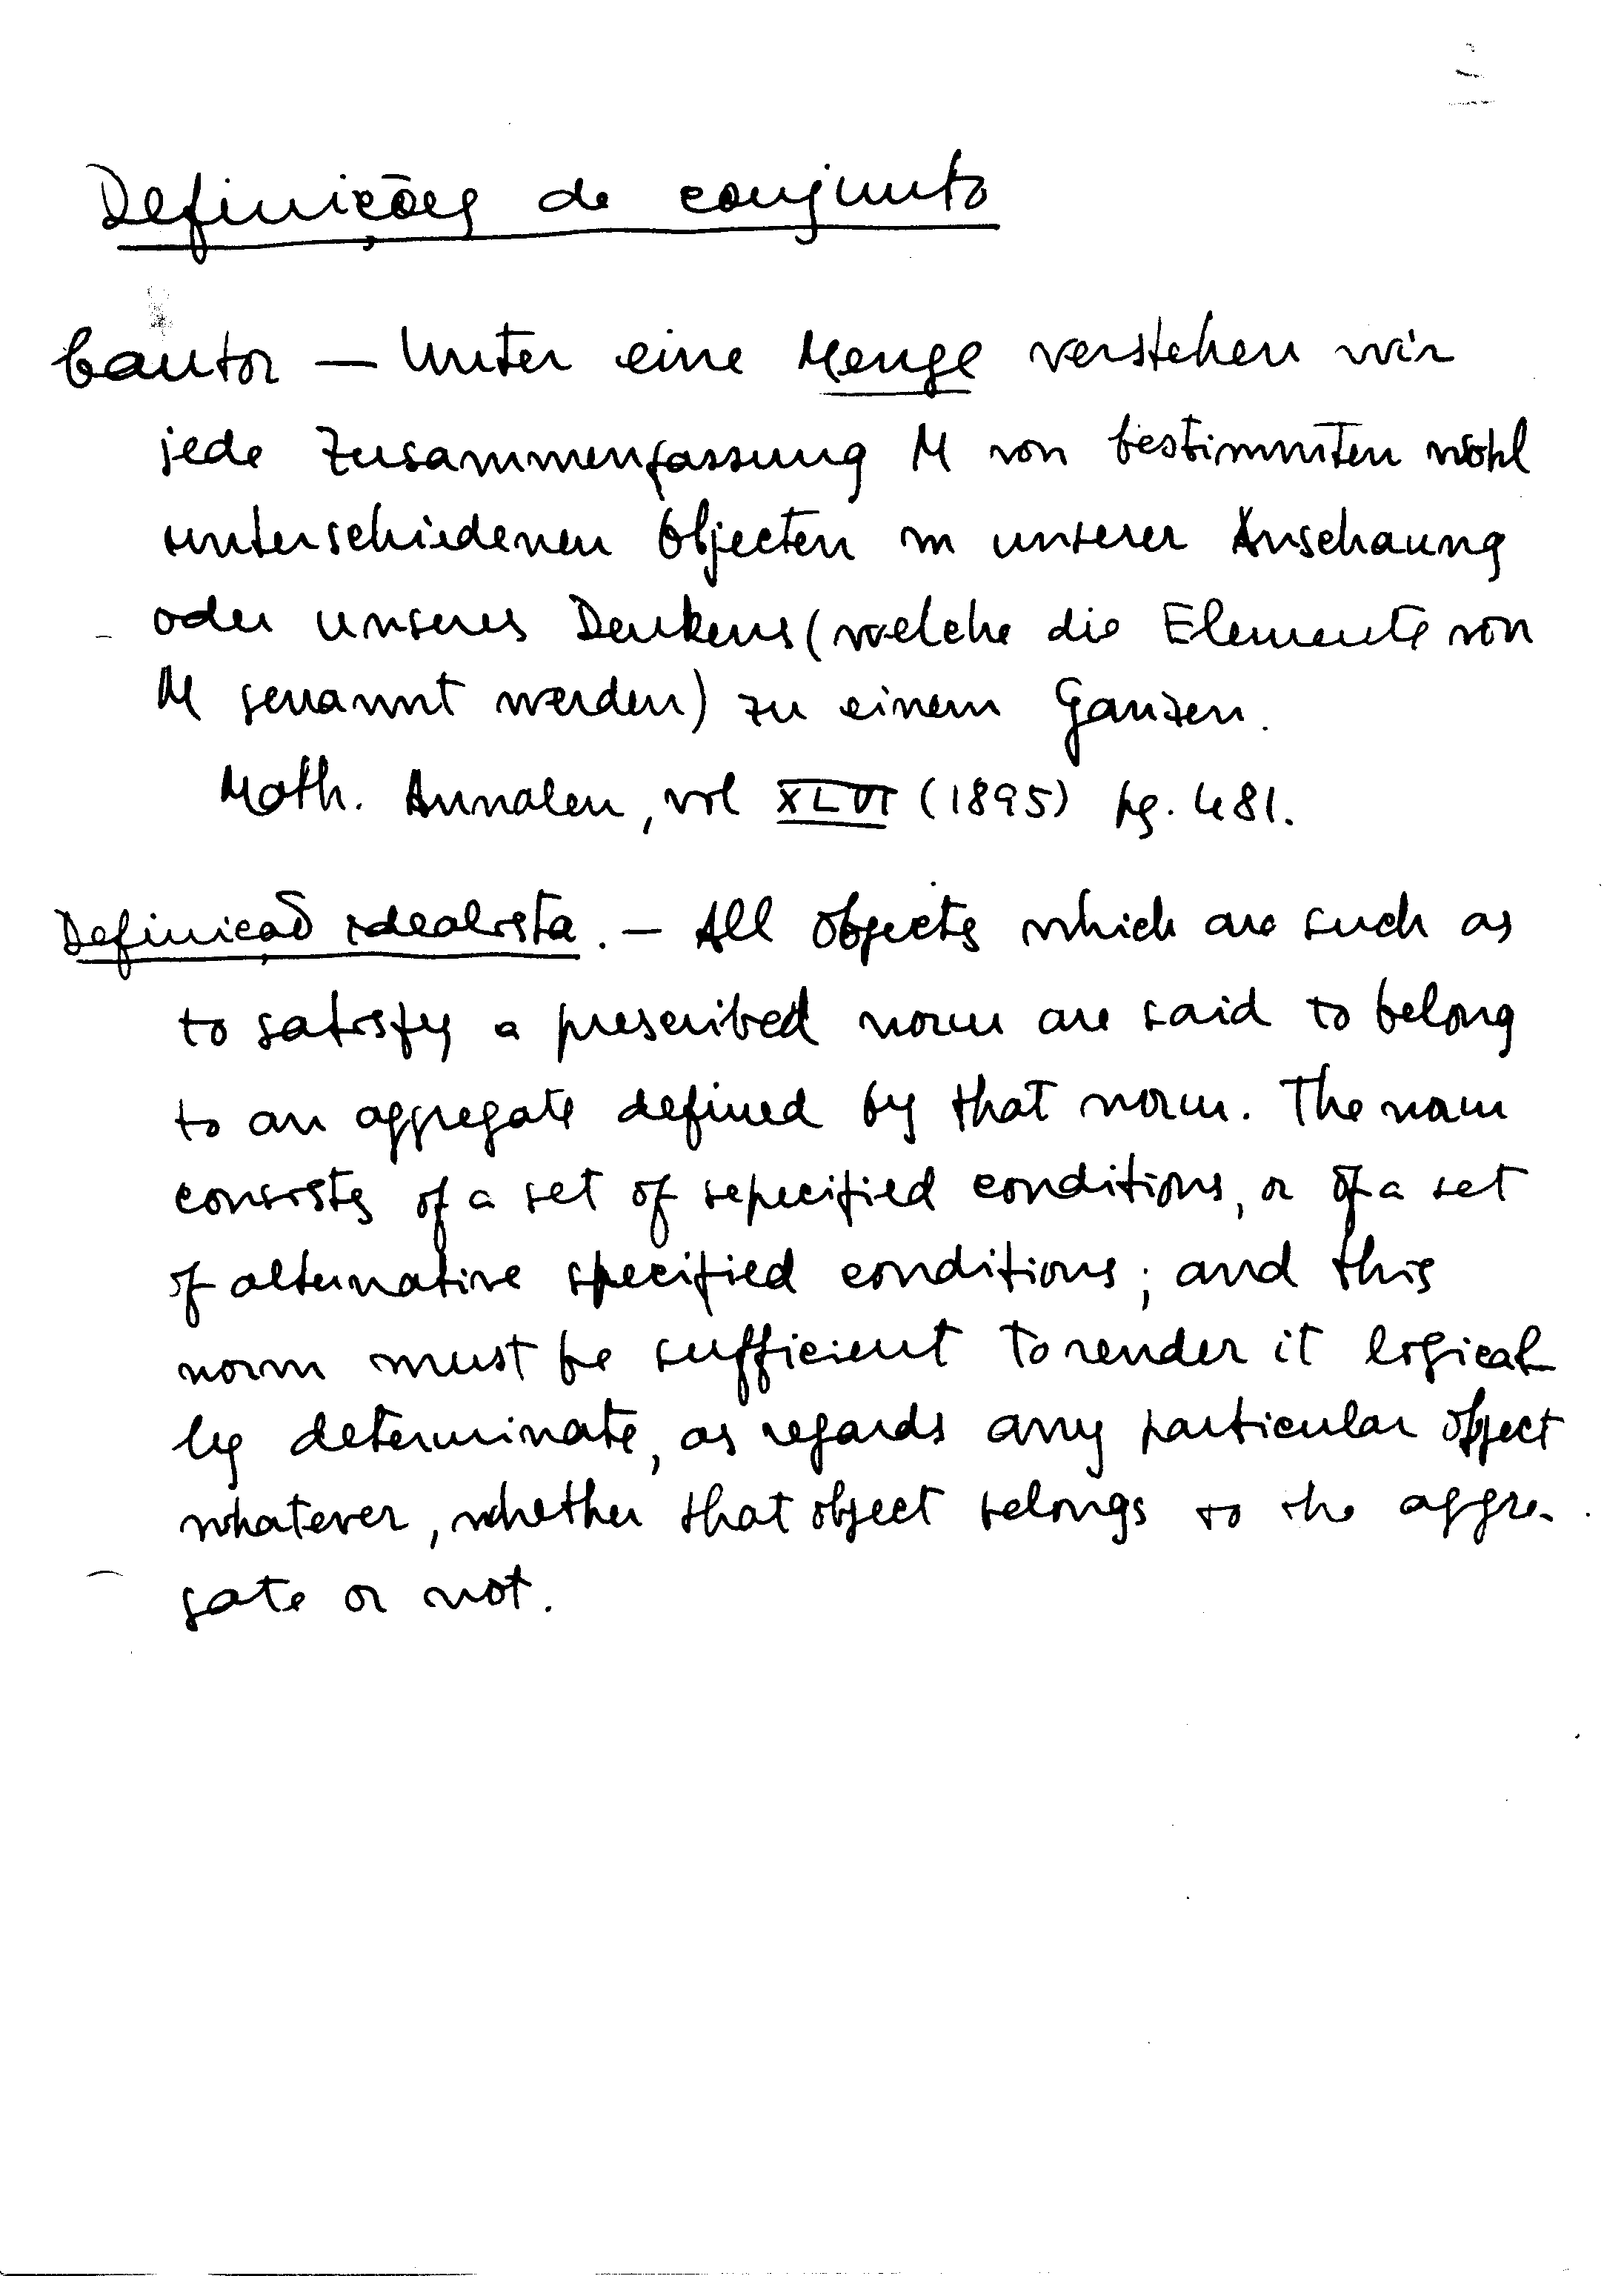 Definições de conjunto
Cantor — Unter eine Menge verstehen wir
jede Zusammenfassung M von bestimmten wohl
unterschiedenen Objecten in unserer Anschauung
oder unseres Denkens (welche die Elemente von
M genannt werden) zu einem Ganzen.
Math. Annalen, vol XLVI (1895) pg. 481.
Definição idealista. — All objects which are such as
to satisfy a prescribed norm are said to belong
to an aggregate defined by that norm. The norm
consists of a set of sepecified conditions, or of a set
of alternative specified conditions; and this
norm must be sufficient to render it logical-
ly determinate, as regards any particular object
whatever, whether that object belongs to the aggre-
gate or not.